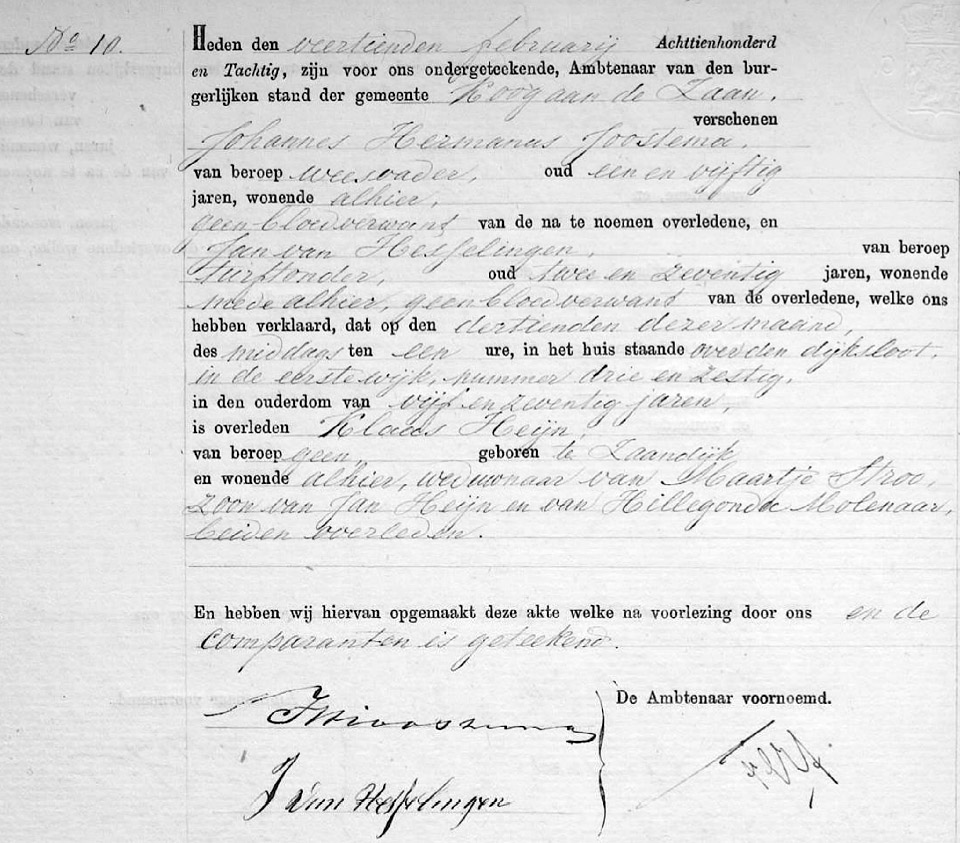 No 10.
Heden den veertienden februarij Achttienhonderd
en Tachtig, zijn voor ons ondergeteekende, Ambtenaar van den bur-
gerlijken stand der gemeente Koog aan de Zaan,
verschenen
Johannes Hermanus Joostema,
van beroep weesvader, oud een en vijftig
jaren, wonende alhier,
geen bloedverwant van de na te noemen overledene, en
Jan van Hesselingen, van beroep
turftonder, oud twee en zeventig jaren, wonende
mede alhier, geen bloedverwant van de overledene, welke ons
hebben verklaard, dat op den dertienden dezer maand,
des middags ten een ure, in het huis staande over den dijksloot,
in de eerste wijk, nummer drie en zestig,
in den ouderdom van vijf en zeventig jaren,
is overleden Klaas Heijn,
van beroep geen, geboren te Zaandijk
en wonende alhier, weduwnaar van Maartje Stroo,
zoon van Jan Heijn en van Hillegonda Molenaar,
beiden overleden.
En hebben wij hiervan opgemaakt deze akte welke na voorlezing door ons en de
comparanten is geteekend.
De Ambtenaar voornoemd.
J van Hesselingen